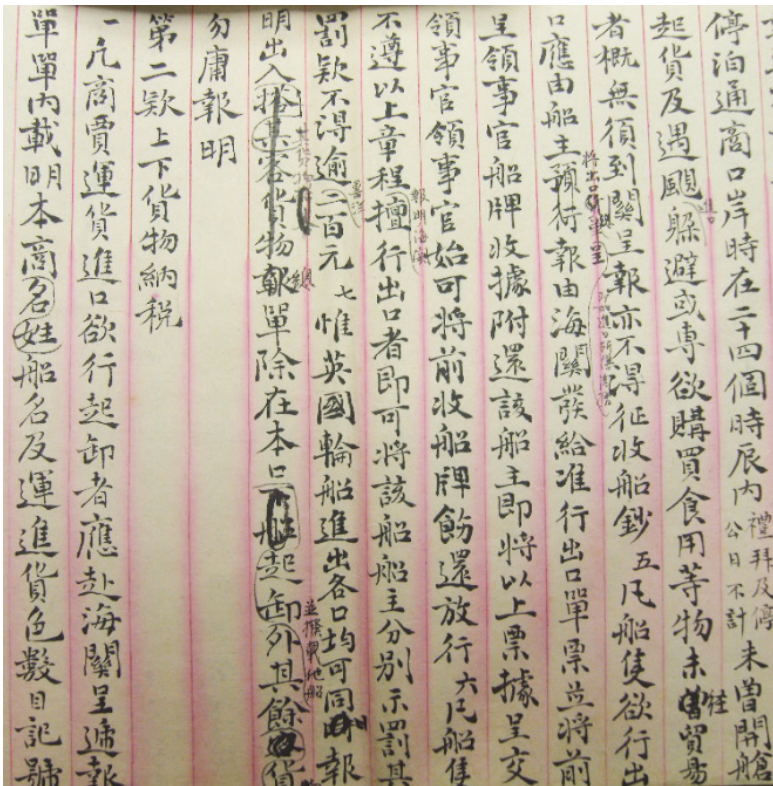 停泊通商口岸時在二十四個時辰內禮拜及停公日不計未曾開艙
起貨及遇颶進口躲避或專欲購買食用等物未往貿易
者概無須到關呈報亦不得征收船鈔五凡船隻欲行出
口應由船主預行報由海關發給准行出口單票並將前
呈領事官船牌收據附還該船主即將以上票據呈交
領事官領事官始可將前收船牌飭還放行六凡船隻
不遵以上章程擅行出口者即可將該船船主分別示罰其
罰款不得逾二百元七惟英國輪船進出各口均可同報
明出入搭客貨物艙單除在本口起卸並撥載他船外其餘貨
勿庸報明
第二款上下貨物納税
一凡商賈運貨進口欲行起卸者應赴海關呈遞報
單單內載明本商名姓船名及運進貨色數目記號